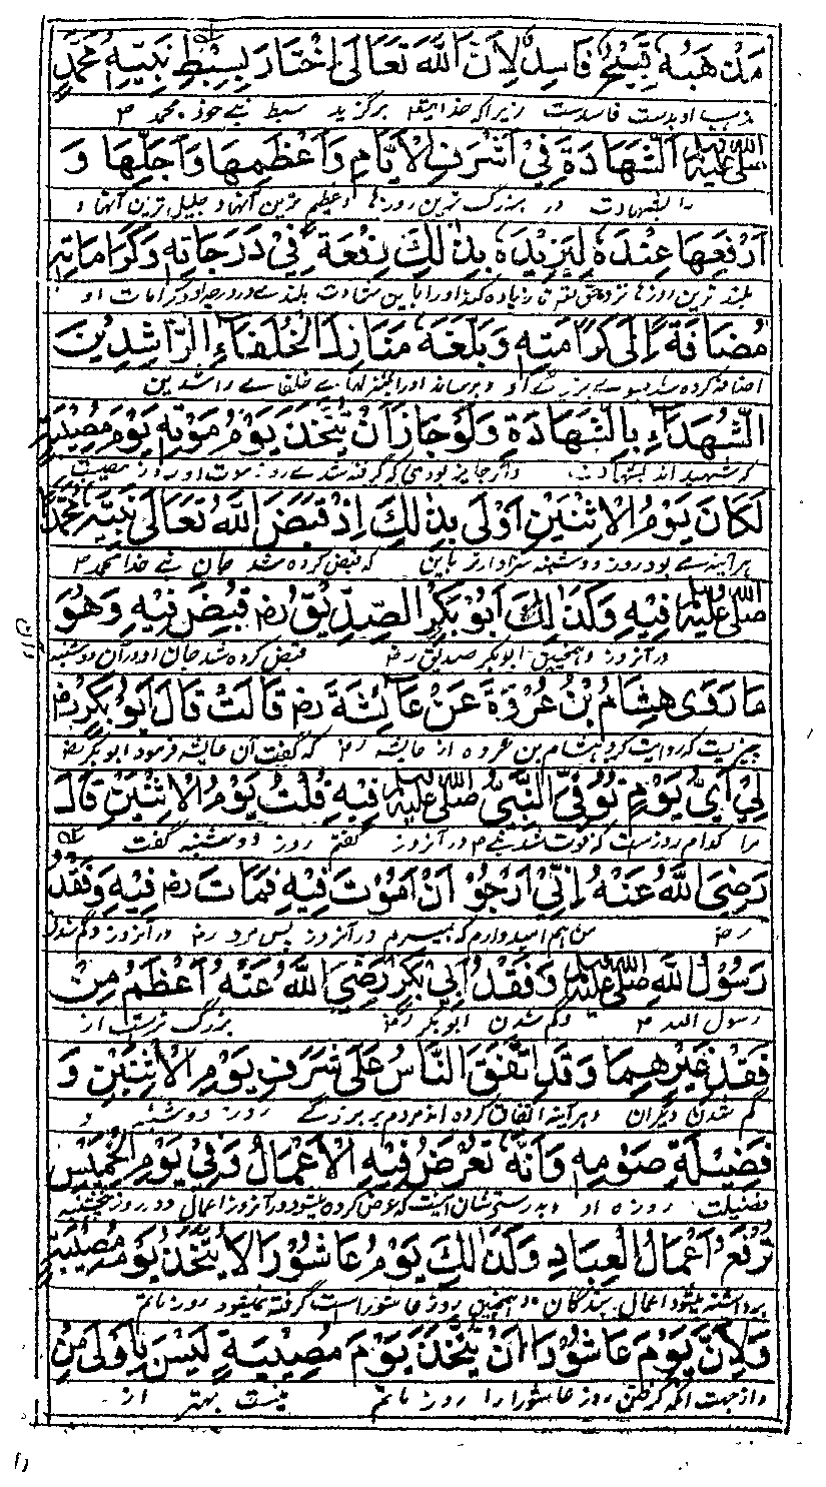 مذهبه قبيح فاسد لان الله تعالى اختار لسبط نبيه محمد
مذهب او بدست فاسدست زیرا که خدایتعالی برگزید سبط نبی خود محمد ص
صلى الله عليه وسلم الشهادة في اشرف الايام واعظمها واجلها و
را شهادت در بزرگ ترین روزها و عظیم ترین آنها و جلیل ترین آنها و
ارفعها عنده ليزيده بذلك رفعة في درجاته وكراماته
بلند ترین روزها نزدیک تا زیاده کند او را باین شهادت بلندی در درجه او و کرامات او
مضافة الى كرامته وبلغه منازل الخلفاء الراشدين
اضافه کرده شد بسوی بزرگی او و برساند او را منزلهای خلفای راشدین
الشهداء بالشهادة ولو جاز ان يتخذ يوم موته يوم مصيبة
که شهید اند بشهادت و اگر جایز بودی که گرفته شدی روز موت او روز مصیبت
لكان يوم الاثنين اولى بذلك اذ قبض الله تعالى نبيه محمدا
هر آینه می بود روز دوشنبه سزاوارتر باین که قبض کرده شد جان نبی خدا محمد ص
صلى الله عليه وسلم فيه وكذلك ابو بكر الصديق رض قبض فيه وهو
در آنروز و همچنین ابوبکر صدیق رض قبض کرده شد جان او در آن دوشنبه
ما روى هشام بن عروة عن عائشة رض قالت قال ابو بكر رض
چیزیست که روایت کرد هشام بن عروه از عایشه رض که گفت آن عایشه فرمود ابو بکر رض
لي اي يوم توفي النبي صلى الله عليه وسلم فيه قلت يوم الاثنين قال
مرا کدام روزست که فوت شد نبی ص در آنروز گفتم روز دوشنبه گفت
رضي الله عنه اني ارجو ان اموت فيه فمات رض فيه وفقد
رض من هم امیدوارم که بمیرم در آنروز پس مرد رض در آنروز و گم شدن
رسول الله صلى الله عليه وسلم وفقد ابي بكر رضي الله عنه اعظم من
رسول الله ص و گم شدن ابو بکر رض بزرگ ترست از
فقد غيرهما وقد اتفق الناس على شرف يوم الاثنين و
گم شدن دیگران و هر آینه اتفاق کرده اند مردم بر بزرگی روز دوشنبه و
فضيلة صومه وانه تعرض فيه الاعمال وفي يوم الخميس
فضیلت روزه او و بدرستی شان اینست که عرض کرده میشود در آنروز اعمال و در روز پنجشنبه
ترفع اعمال العباد وكذلك يوم عاشورا لا يتخذ يوم مصيبة
برداشته میشود اعمال بندگان و همچنین روز عاشوراست گرفته نمیشود روز ماتم
ولان يوم عاشورا ان يتخذ يوم مصيبة ليس باولى من
و از جهت آنکه گرفتن روز عاشورا را روز ماتم نیست بهتر از